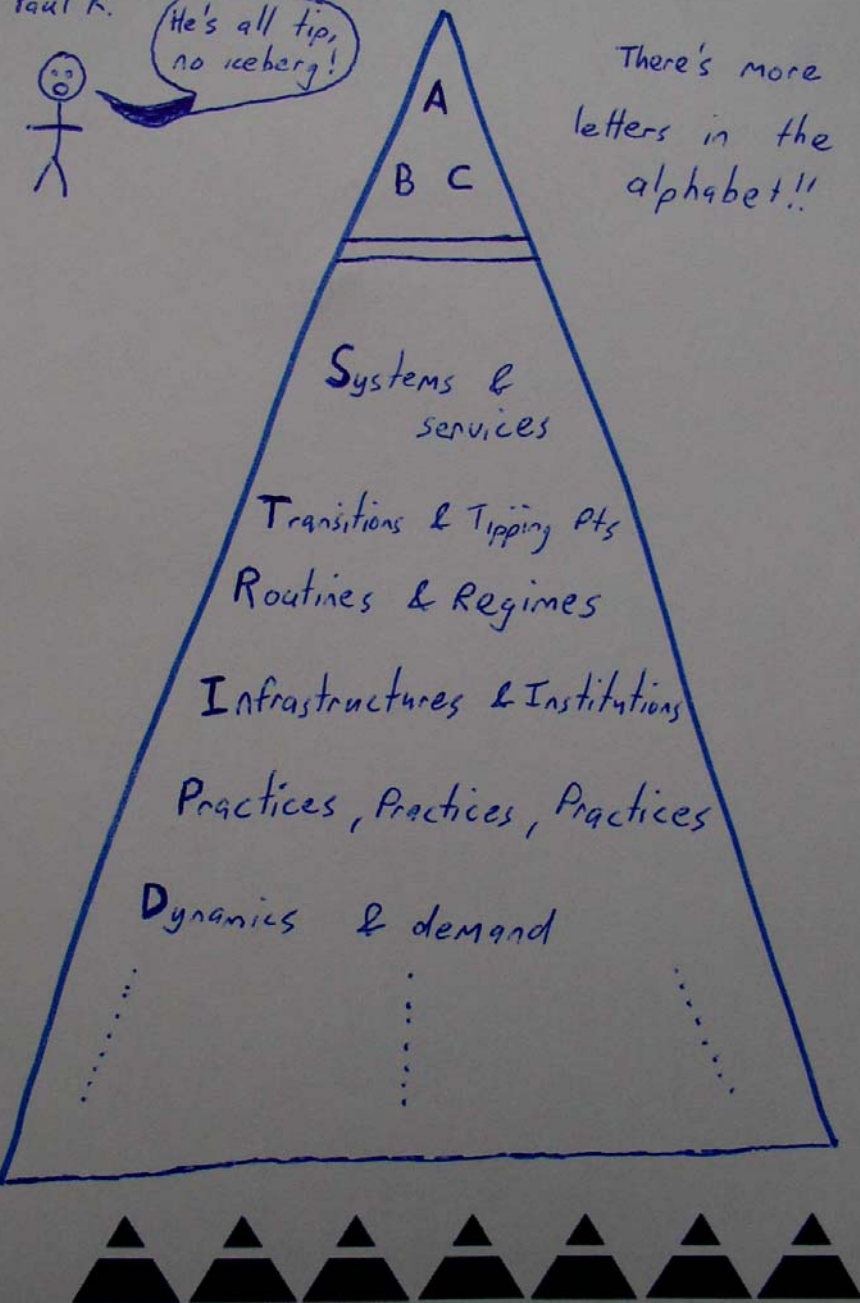 Paul K.
He's all tip,
no iceberg!
There's more
letters in the
alphabet!!
A
B C
Systems &
services
Transitions & Tipping Pts
Routines & Regimes
Infrastructures & Institutions
Practices, Practices, Practices
Dynamics & demand